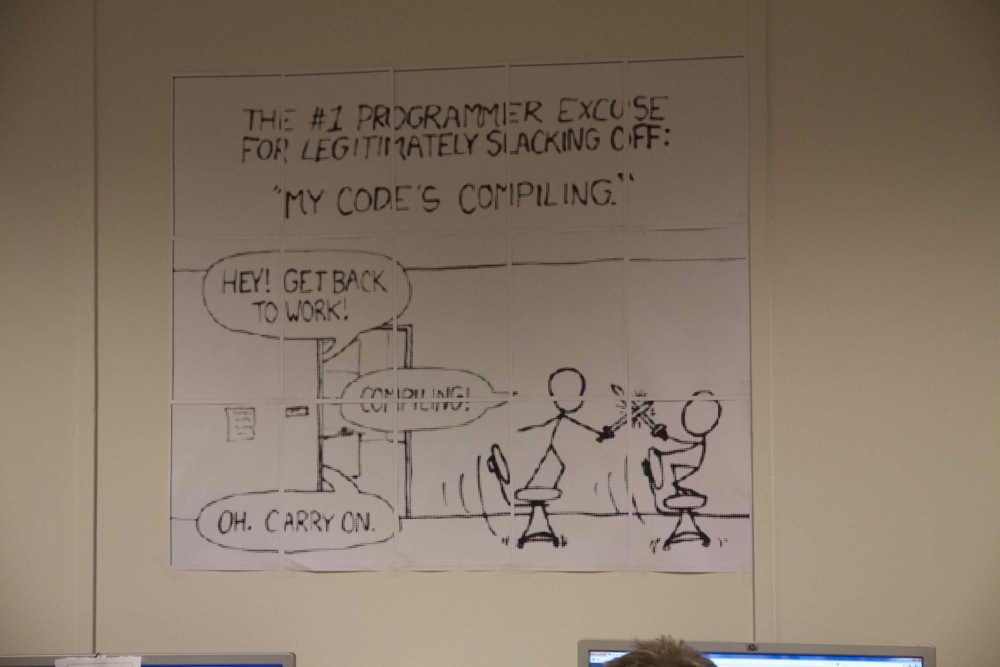 THE #1 PROGRAMMER EXCUSE
FOR LEGITIMATELY SLACKING OFF:
"MY CODE'S COMPILING."
HEY! GET BACK
TO WORK!
COMPILING!
OH. CARRY ON.